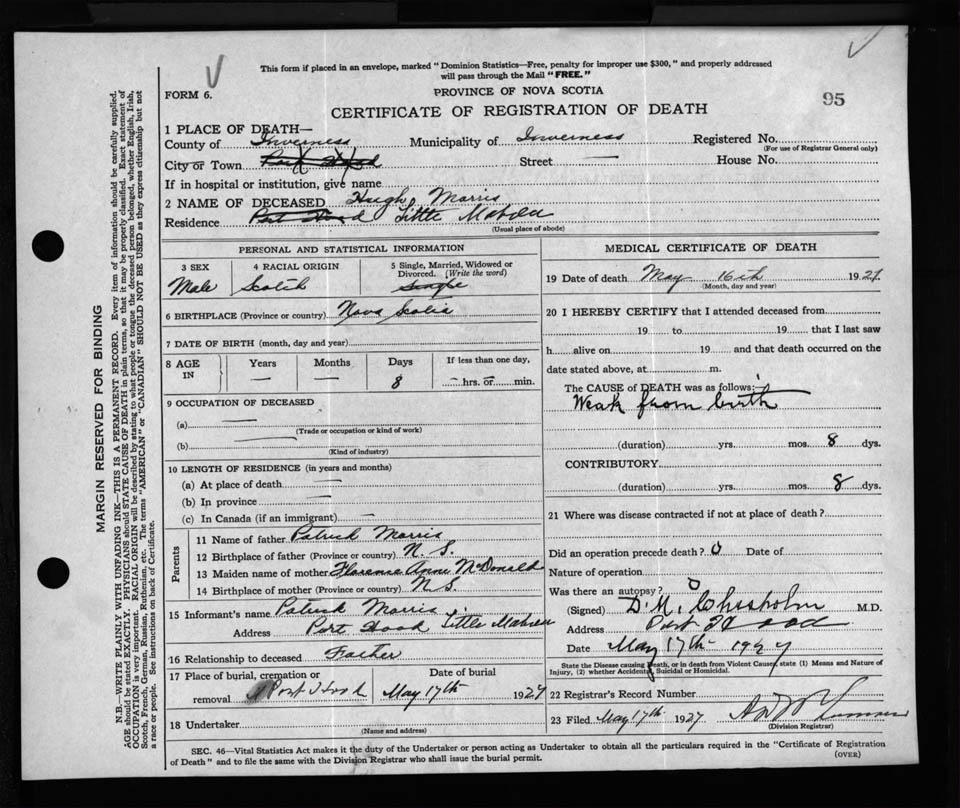 This form if placed in an envelope, marked "Dominion Statistics—Free, penalty for improper use $300," and properly addressed
will pass through the Mail "FREE."
FORM 6.
PROVINCE OF NOVA SCOTIA
95
CERTIFICATE OF REGISTRATION OF DEATH
1 PLACE OF DEATH—
County of Inverness Municipality of Inverness Registered No.
(For use of Registrar General only)
City or Town Port Hood Street — House No.
If in hospital or institution, give name
2 NAME OF DECEASED Hugh Morris
Residence Port Hood Little Mabou
(Usual place of abode)
PERSONAL AND STATISTICAL INFORMATION
3 SEX 4 RACIAL ORIGIN 5 Single, Married, Widowed or Divorced. (Write the word)
Male Scotch Single
6 BIRTHPLACE (Province or country) Nova Scotia
7 DATE OF BIRTH (month, day and year)
8 AGE IN Years Months Days If less than one day,
— — 8 — hrs. or min.
9 OCCUPATION OF DECEASED
(a) —
(Trade or occupation or kind of work)
(b) —
(Kind of industry)
10 LENGTH OF RESIDENCE (in years and months)
(a) At place of death —
(b) In province —
(c) In Canada (if an immigrant) —
Parents
11 Name of father Patrick Morris
12 Birthplace of father (Province or country) N. S.
13 Maiden name of mother Florence Anne McDonald
14 Birthplace of mother (Province or country) N. S.
15 Informant's name Patrick Morris
Address Port Hood Little Mabou
16 Relationship to deceased Father
17 Place of burial, cremation or removal Port Hood Date of burial May 17th 1927
18 Undertaker
(Name and address)
MEDICAL CERTIFICATE OF DEATH
19 Date of death May 16th 1927
(Month, day and year)
20 I HEREBY CERTIFY that I attended deceased from
19 to 19 that I last saw
h alive on 19 and that death occurred on the
date stated above, at m.
The CAUSE of DEATH was as follows:
Weak from birth
(duration) yrs. mos. 8 dys.
CONTRIBUTORY
(duration) yrs. mos. 8 dys.
21 Where was disease contracted if not at place of death?
Did an operation precede death? 0 Date of
Nature of operation
Was there an autopsy? 0
(Signed) D. M. Chisholm M.D.
Address Port Hood
Date May 17th 1927
State the Disease causing Death, or in death from Violent Causes, state (1) Means and Nature of
Injury, (2) whether Accidental, Suicidal or Homicidal.
22 Registrar's Record Number
23 Filed May 17th 1927
(Division Registrar)
SEC. 46—Vital Statistics Act makes it the duty of the Undertaker or person acting as Undertaker to obtain all the particulars required in the "Certificate of Registration
of Death" and to file the same with the Division Registrar who shall issue the burial permit.
(OVER)
MARGIN RESERVED FOR BINDING
N.B.—WRITE PLAINLY, WITH UNFADING INK—THIS IS A PERMANENT RECORD. Every item of information should be carefully supplied.
AGE should be stated EXACTLY. PHYSICIANS should STATE CAUSE OF DEATH in plain terms, so that it may be properly classified. Exact statement of
OCCUPATION is very important. RACIAL ORIGIN will be described by stating to what people or tongue the deceased person belonged, whether English, Irish,
Scotch, French, German, Russian, Ruthenian, etc. The terms "AMERICAN" or "CANADIAN" SHOULD NOT BE USED as they express citizenship but not
a race or people. See instructions on back of Certificate.